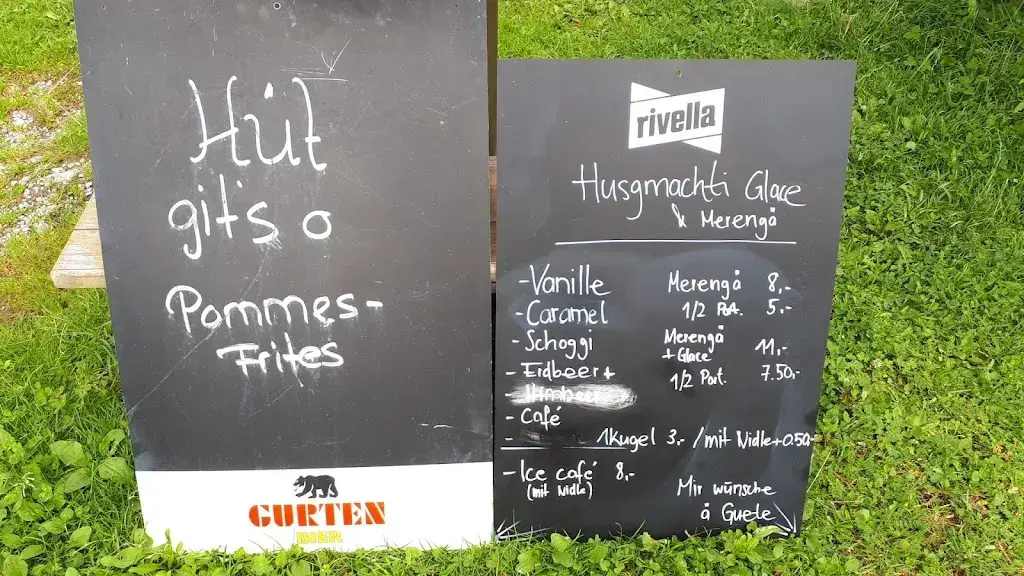 Hüt
git's o
Pommes-
Frites
GURTEN
BIER
rivella
Husgmachti Glace
& Merengå
- Vanille
- Caramel
- Schoggi
- Erdbeer +
- Café
Merengå 8,-
1/2 Port. 5,-
Merengå
+ Glace 11,-
1/2 Port. 7.50,-
1 Kugel 3,- / mit Nidle + 0.50
- Ice café 8,-
(mit Nidle)
Mir wünsche
å Guete